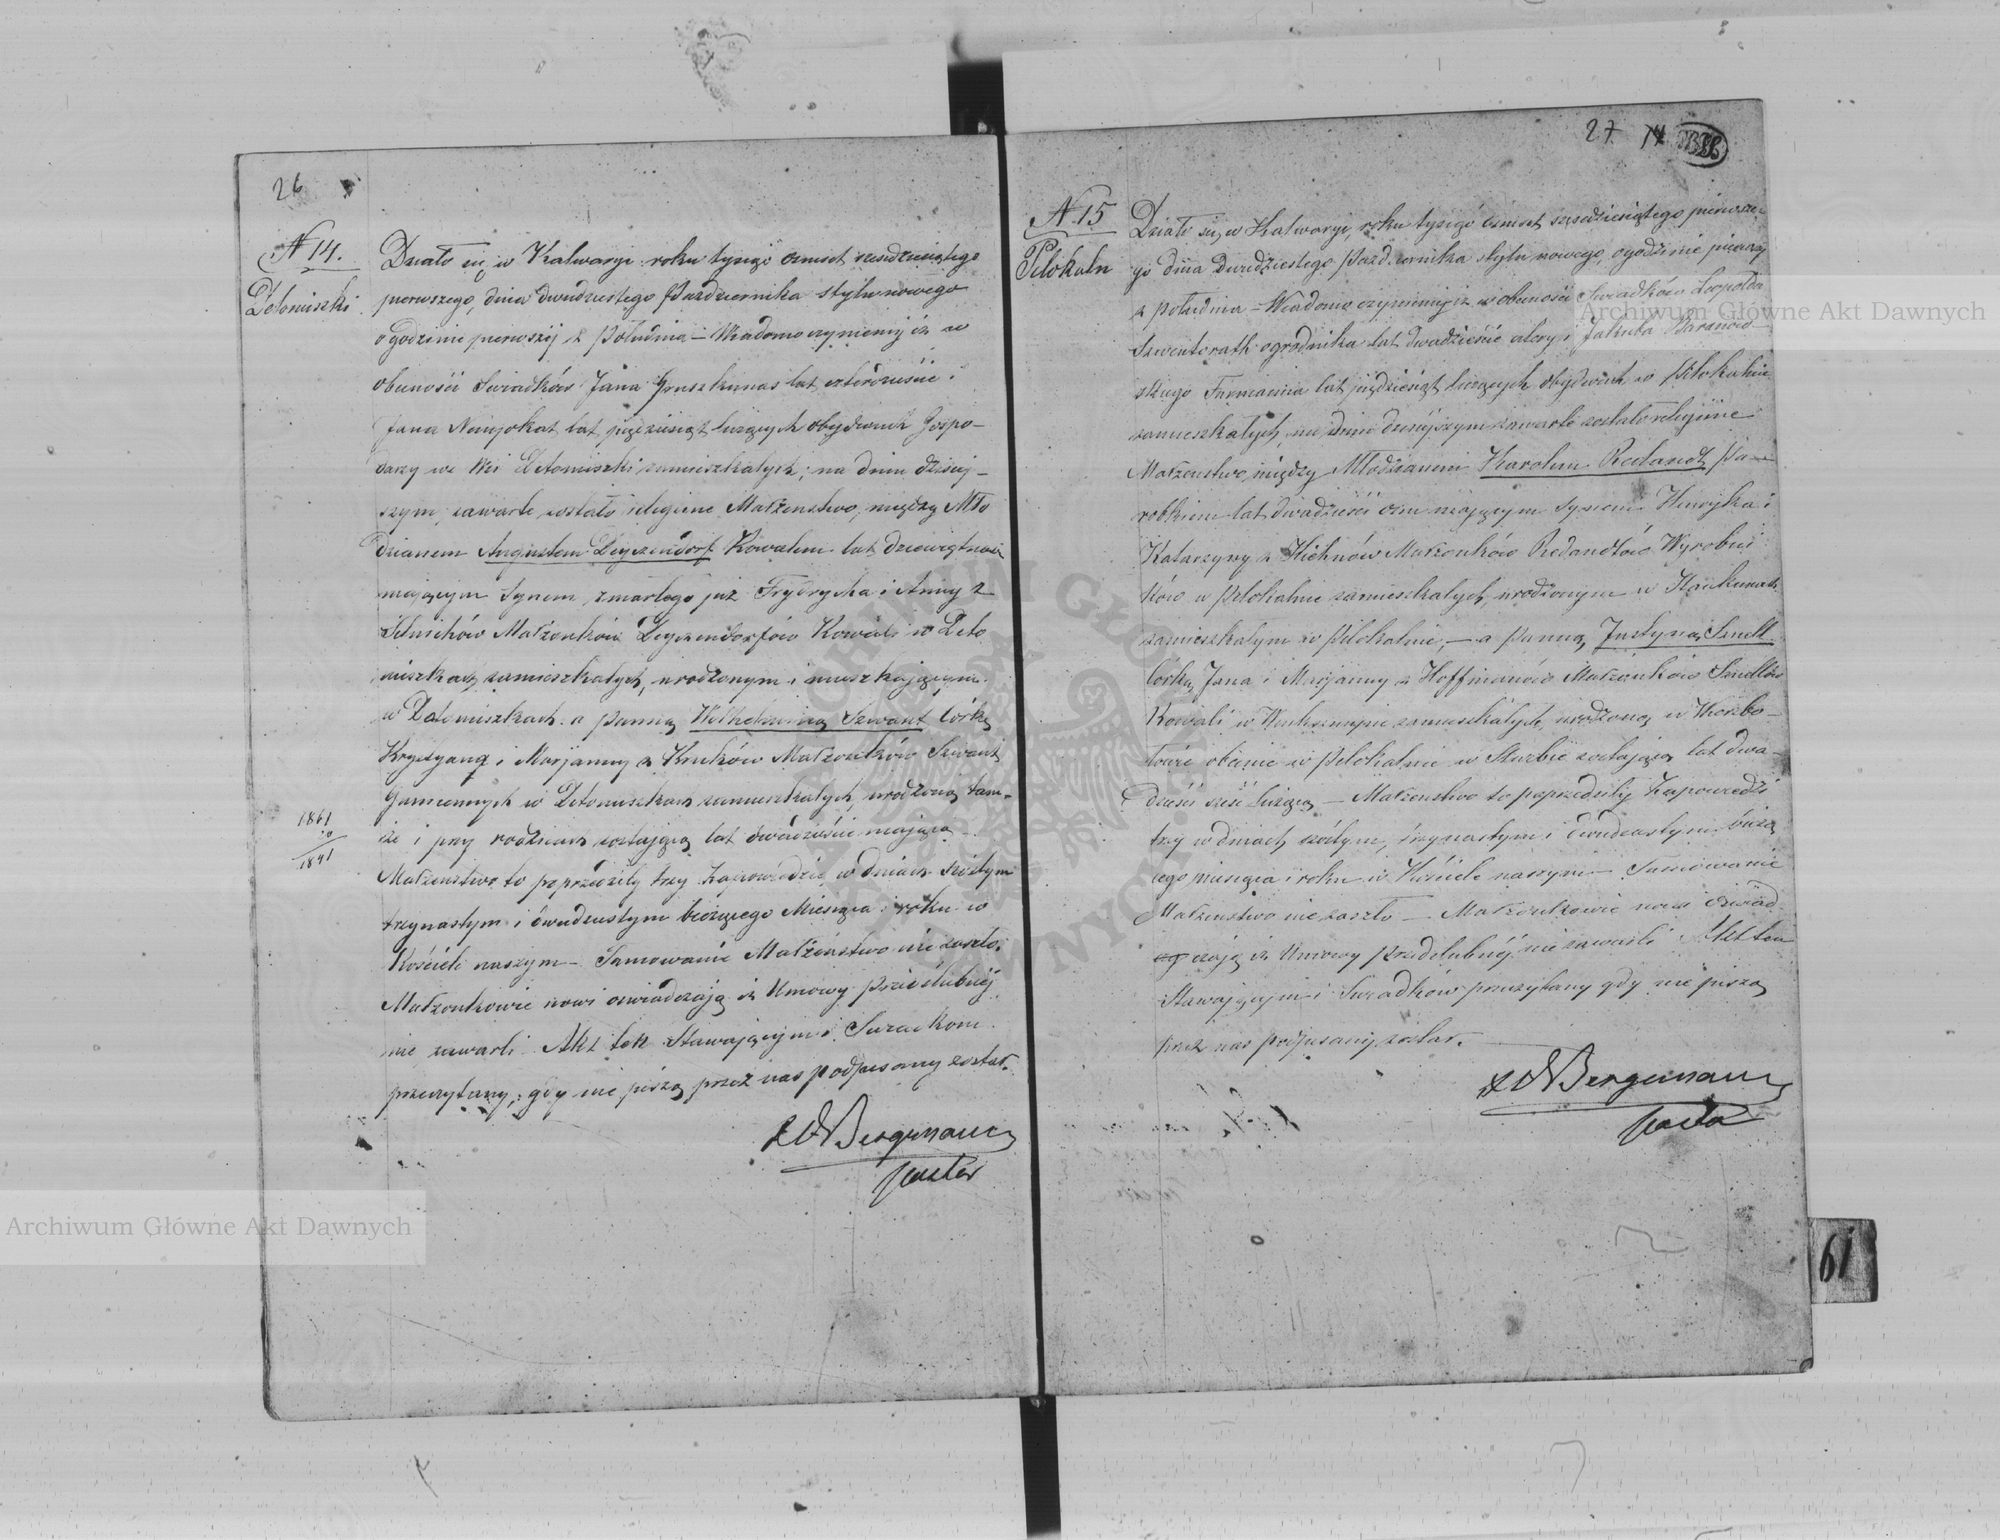 26
N 14.
Detomiszki
Działo się w Kalwaryi roku tysiąc ośmset sześdziesiątego
pierwszego, dnia dwudziestego Października stylu nowego
o godzinie pierwszej z Południa – Wiadomo czyniemy iż w
obecności Świadków Jana lat czterdzieście i
Jana lat pięćdziesiąt liczących obydwoch Gospo-
darzy we Wsi Detomiszki zamieszkałych; na dniu dzisiej-
szym, zawarte zostało religijne Małżeństwo, między Mło
dzianem Augustem Kowalem lat
mającym Synem zmarłego już Frydrycha i Anny z
Małżonków Kowali w Deto
miszkach zamieszkałych, urodzonym i mieszkającym
w Detomiszkach a panną Wilhelminą Szwant Córką
Krystyana i Maryanny z Kruków Małżonków Szwant
w Detomiszkach zamieszkałych, urodzoną tam-
że i przy rodzicach zostającą lat dwadzieście mającą
1861
1841
Małżeństwo to poprzedziły trzy Zapowiedzie w dniach szóstym
trzynastym i dwudziestym bieżącego Miesiąca i roku w
Kościele naszym – Tamowanie Małżeństwa nie zaszło.
Małżonkowie nowi oswiadczają iż Umowy Przedślubnej
nie zawarli Akt ten Stawającym i Świadkom
przeczytany; gdy nie piszą przez nas podpisany został.
Bergemann
Pastor
27 14
N 15
Pilokaln
Działo się w Kalwaryi, roku tysiąc ośmset sześdziesiątego pierwsze-
go dnia dwudziestego Października stylu nowego, o godzinie pierwszej
z Południa – Wiadomo czyniemy iż w obecności Świadków Leopolda
ogrodnika lat dwadzieście cztery i Jakuba Baranow-
skiego Furmana lat pięćdziesiąt liczących obydwoch w Pilokalnie
zamieszkałych, na dniu dzisiejszym zawarte zostało religijne
Małżeństwo między Młodzianem Karolem Redandt, Pa-
robkiem lat dwadzieście osm mającym Synem Henryka i
Katarzyny z Małżonków Redandtów Wyrobni
ków w Pilokalnie zamieszkałych, urodzonym w
zamieszkałym w Pilokalnie, – a Panną Justyną Smelt
Córką Jana i Maryanny z Hoffmanów Małżonków
Kowali w zamieszkałych, urodzoną w
obecnie w Pilokalnie w Służbie zostającą lat dwa-
dzieście sześć liczącą – Małżeństwo to poprzedziły Zapowiedzi
trzy w dniach szóstym, trzynastym i dwudziestym bieżą
cego miesiąca i roku w Kościele naszym – Tamowanie
Małżeństwa nie zaszło – Małżonkowie nowi oświad-
czają iż Umowy Przedślubnej nie zawarli Akt ten
Stawającym i Świadków przeczytany gdy nie piszą
przez nas podpisany został.
Bergemann
Pastor
61
Archiwum Główne Akt Dawnych
Archiwum Główne Akt Dawnych